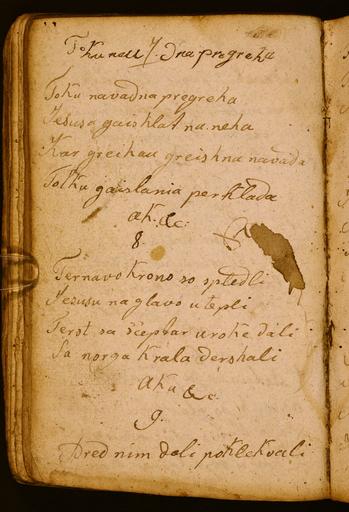 Toku navadna pregreha
Jesusa gaishlat na neha
Kar greihau greishna navada
Tolku gaislania perklada
aku &c:
8.
Ternavo krono so spledli
Jezusu na glavo utepli
Terst sa sceptar uroke dali
Sa norga krala dershali
aku &c
9.
Pred nim doli poklekvali